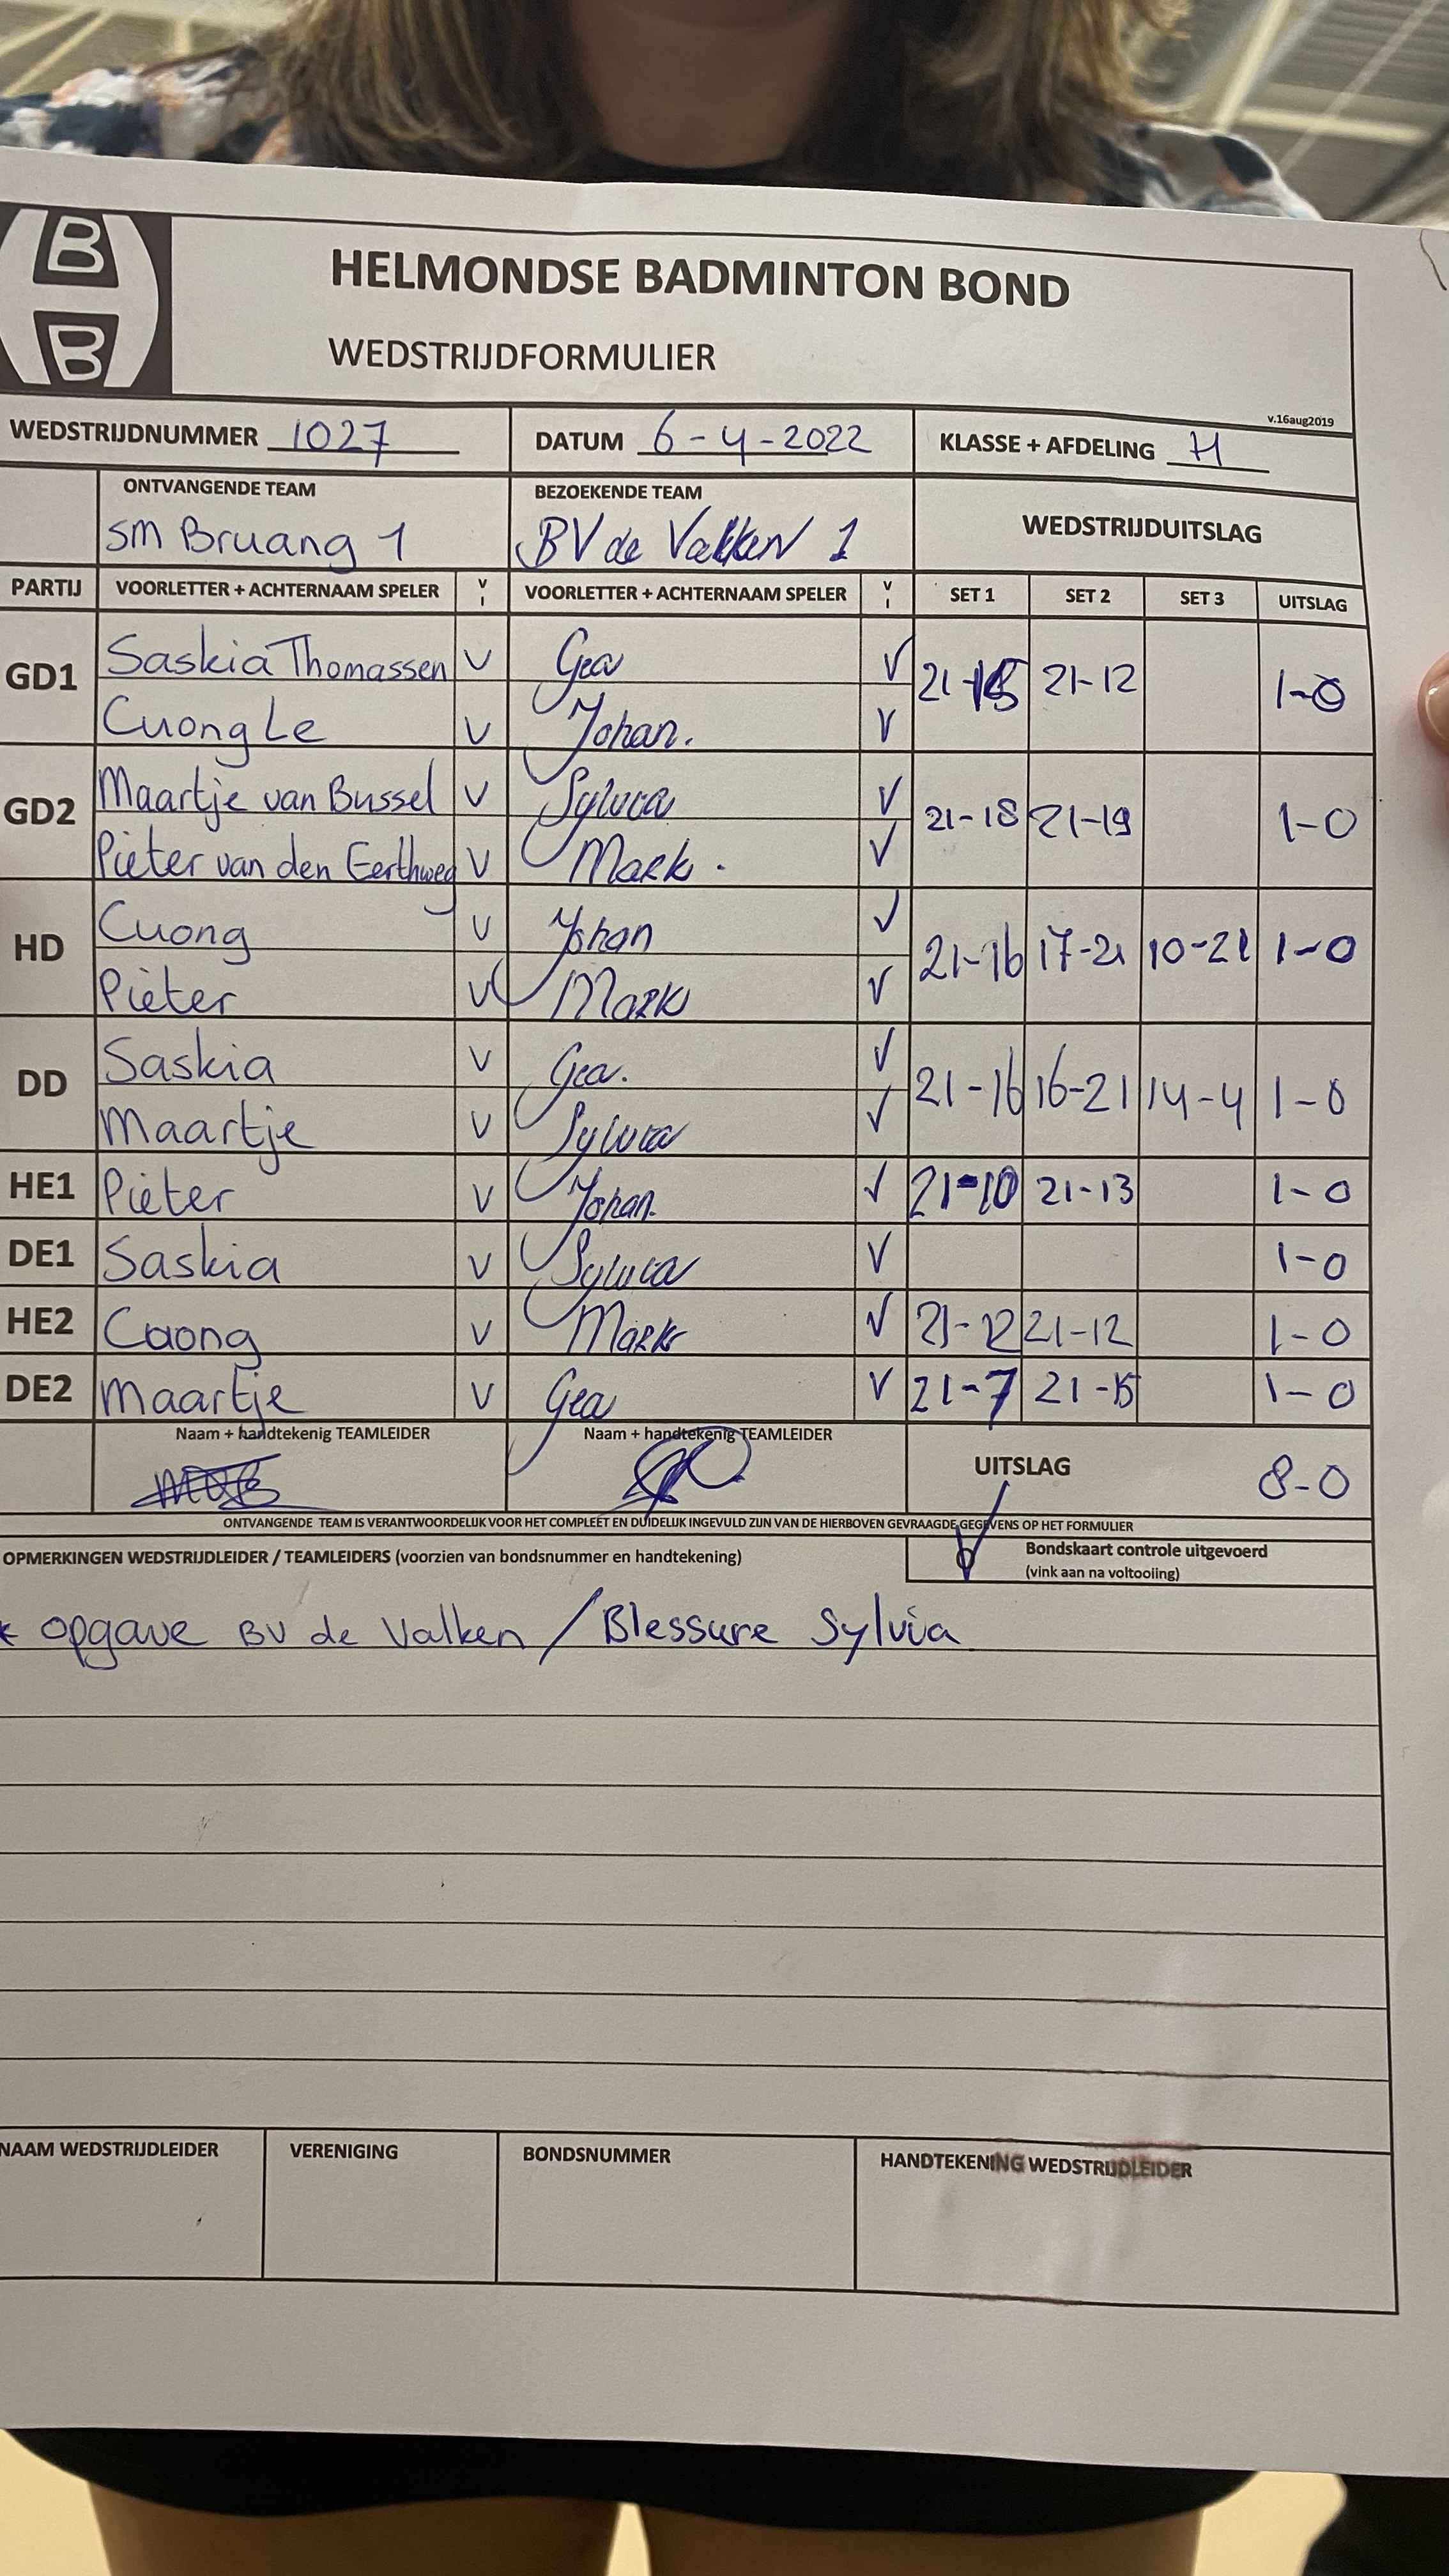 B
B
HELMONDSE BADMINTON BOND
WEDSTRIJDFORMULIER
v.16aug2019
WEDSTRIJDNUMMER 1027 DATUM 6-4-2022 KLASSE + AFDELING H
ONTVANGENDE TEAM BEZOEKENDE TEAM WEDSTRIJDUITSLAG
SM Bruang 1 BV de Valken 1
PARTIJ VOORLETTER + ACHTERNAAM SPELER V I VOORLETTER + ACHTERNAAM SPELER V I SET 1 SET 2 SET 3 UITSLAG
GD1 Saskia Thomassen V Gea V 21-15 21-12 1-0
Cuong Le V Johan. V
GD2 Maartje van Bussel V Sylvia V 21-18 21-19 1-0
Pieter van den Eerthweg V Mark. V
HD Cuong V Johan V 21-16 17-21 10-21 1-0
Pieter V Mark V
DD Saskia V Gea. V 21-16 16-21 14-4 1-0
Maartje V Sylvia V
HE1 Pieter V Johan. V 21-10 21-13 1-0
DE1 Saskia V Sylvia V 1-0
HE2 Caong V Mark V 21-12 21-12 1-0
DE2 Maartje V Gea V 21-7 21-15 1-0
Naam + handtekenig TEAMLEIDER Naam + handtekenig TEAMLEIDER UITSLAG 8-0
ONTVANGENDE TEAM IS VERANTWOORDELIJK VOOR HET COMPLEET EN DUIDELIJK INGEVULD ZIJN VAN DE HIERBOVEN GEVRAAGDE GEGEVENS OP HET FORMULIER
OPMERKINGEN WEDSTRIJDLEIDER / TEAMLEIDERS (voorzien van bondsnummer en handtekening) Bondskaart controle uitgevoerd
(vink aan na voltooiing)
* opgave BV de Valken / Blessure Sylvia
NAAM WEDSTRIJDLEIDER VERENIGING BONDSNUMMER HANDTEKENING WEDSTRIJDLEIDER